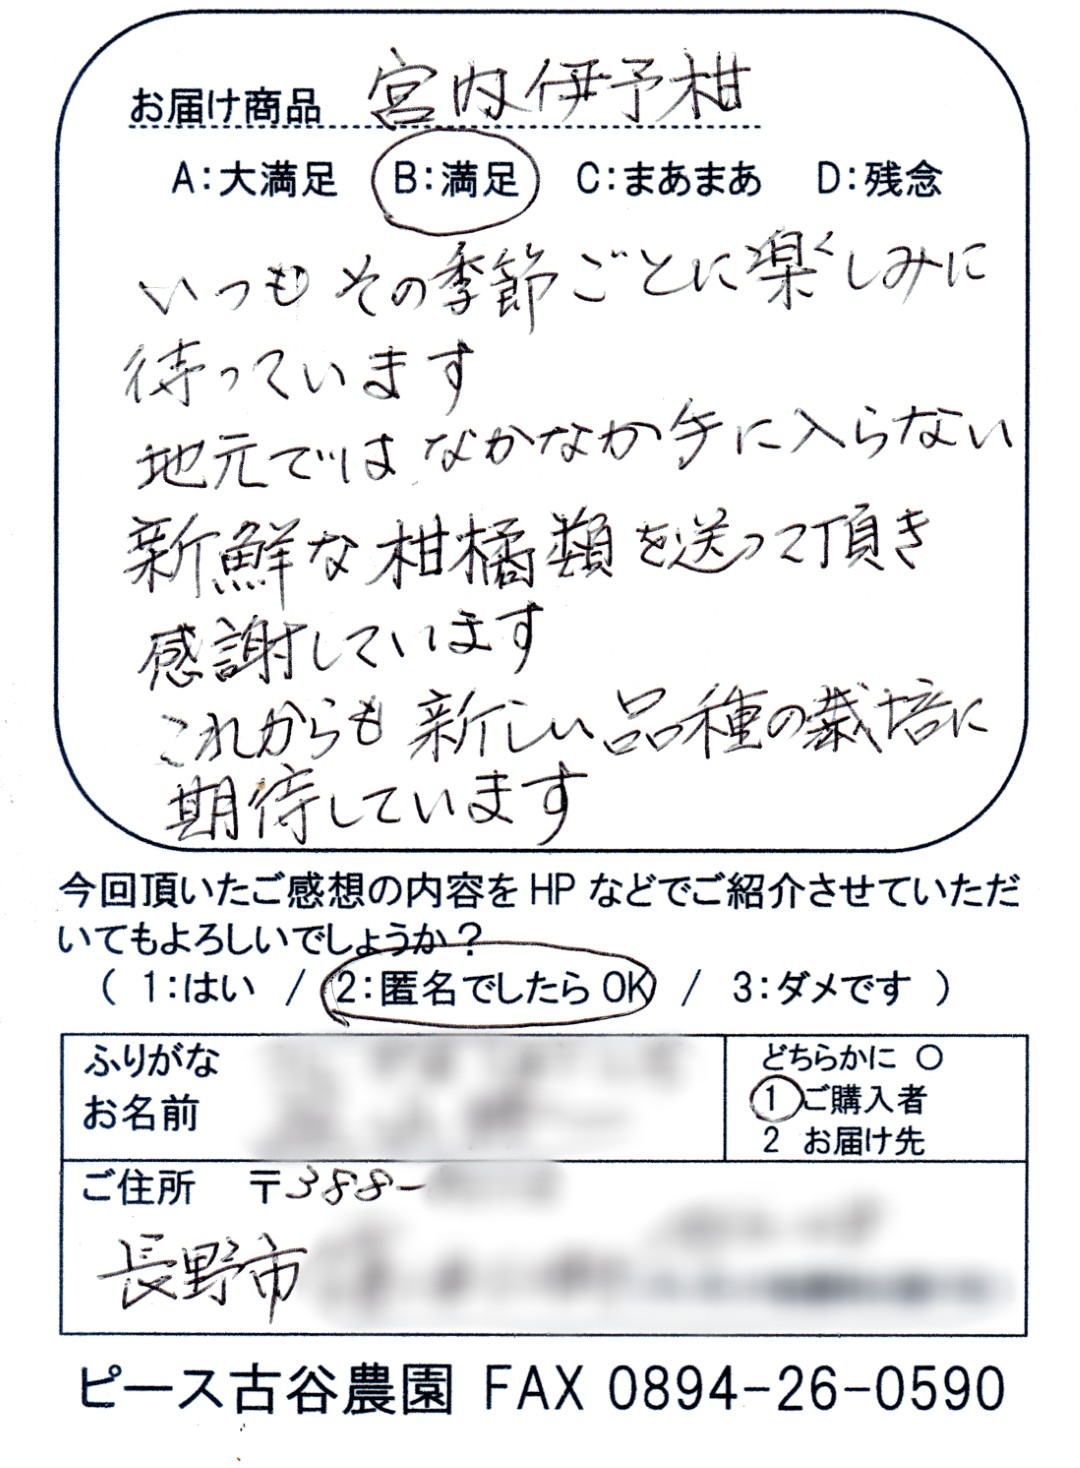 お届け商品 宮内伊予柑
A:大満足 B:満足 C:まあまあ D:残念
いつもその季節ごとに楽しみに
待っています
地元ではなかなか手に入らない
新鮮な柑橘類を送って頂き
感謝しています
これからも新しい品種の栽培に
期待しています
今回頂いたご感想の内容をHPなどでご紹介させていただ
いてもよろしいでしょうか?
( 1:はい / 2:匿名でしたらOK / 3:ダメです )
ふりがな
お名前
どちらかに ○
1 ご購入者
2 お届け先
ご住所 〒388-
長野市
ピース古谷農園 FAX 0894-26-0590